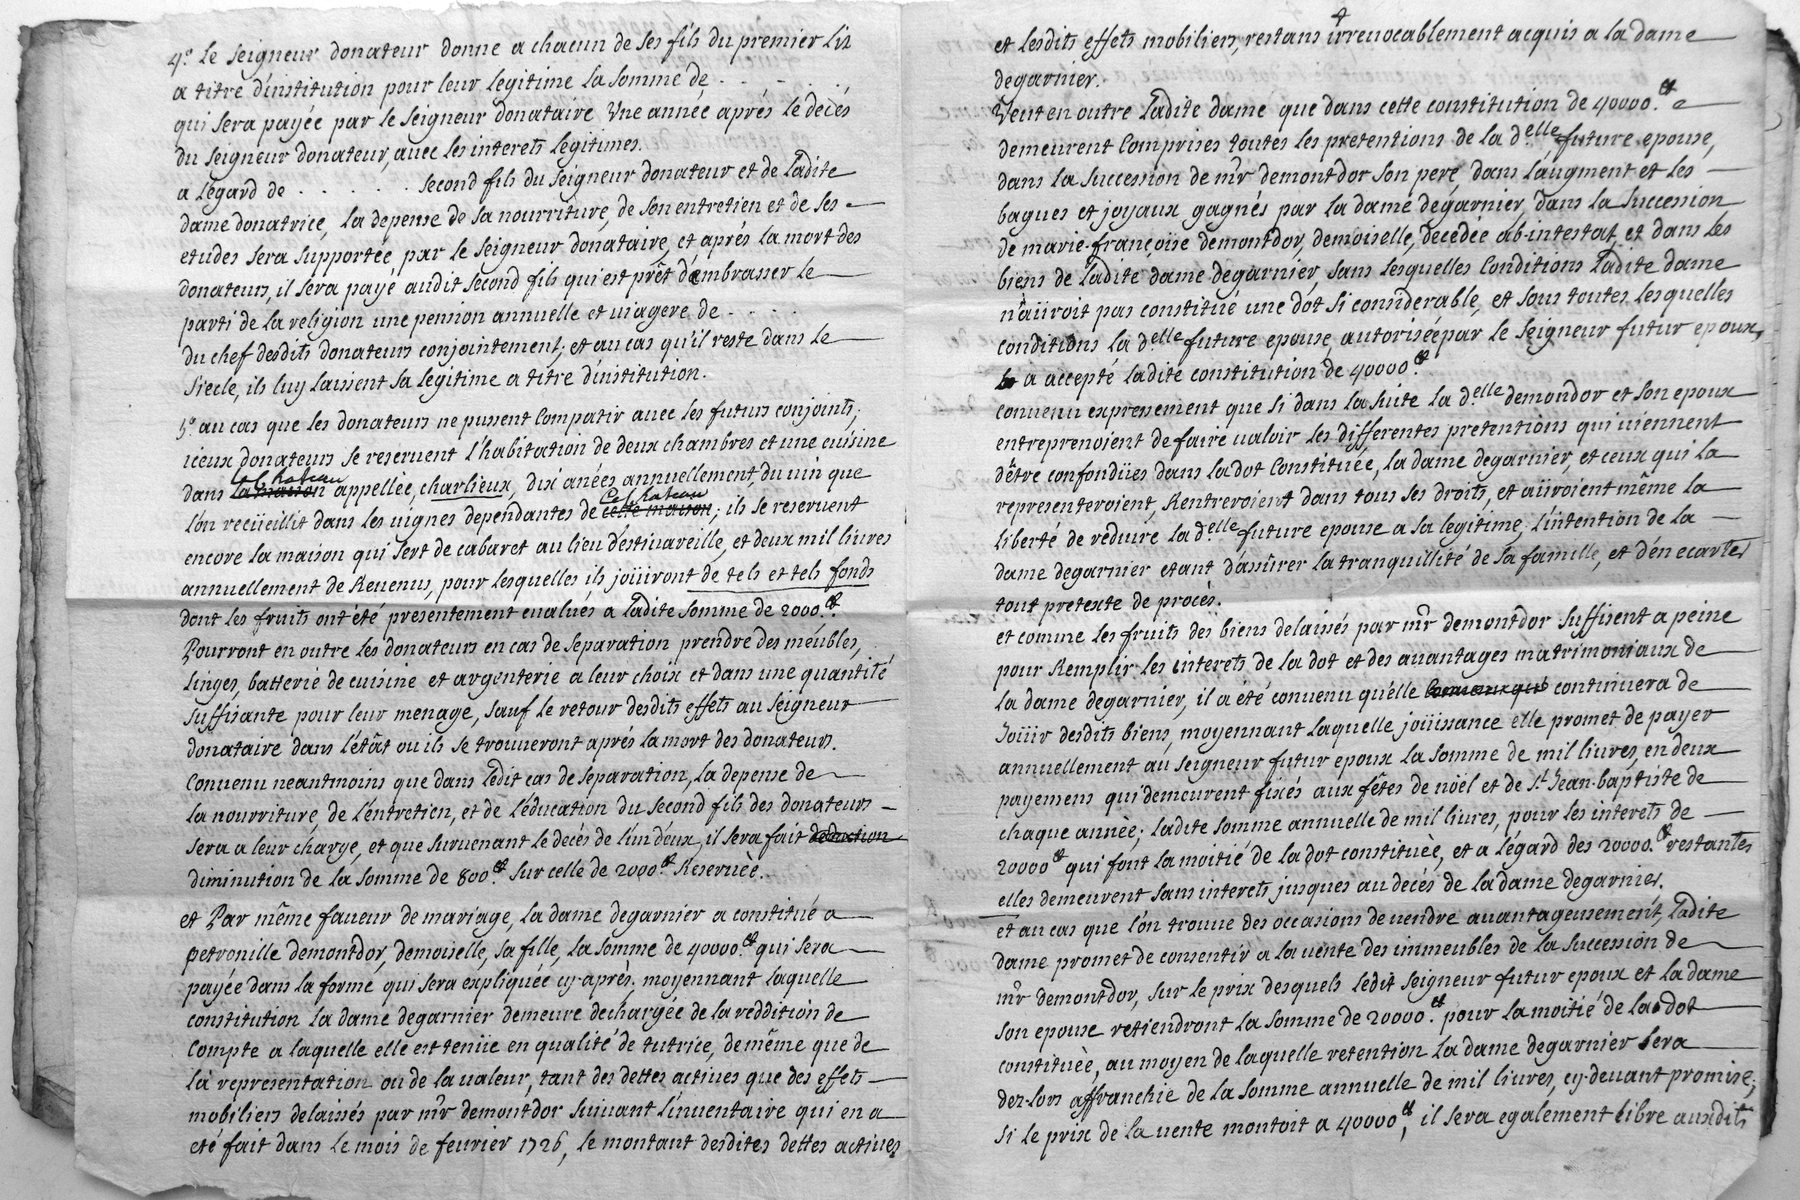 4.° le seigneur donateur donne a chacun de ses fils du premier lit
a titre d'institution pour leur legitime la somme de . . . . . .
qui sera payée par le seigneur donataire une année aprés le decés
du seigneur donateur, avec les interets legitimes.
a légard de . . . . . . second fils du seigneur donateur et de ladite
dame donatrice, la depense de sa nourriture, de son entretien et de ses
etudes sera supportée, par le seigneur donataire, et aprés la mort des
donateurs, il sera payé audit second fils qui est prêt d'embrasser le
parti de la religion une pension annuelle et viagere de . . . .
du chef desdits donateurs conjointement; et au cas qu'il reste dans le
siecle, ils luy laissent sa legitime a titre d'institution.
5.° au cas que les donateurs ne pussent compatir avec les futurs conjoints,
iceux donateurs se reservent l'habitation de deux chambres et une cuisine
le chateau
dans la maison appellée, charlieux, dix anées annuellement, du vin que
ce chateau
l'on recüeillit dans les vignes dependantes de cette maison; ils se reservent
encore la maison qui sert de cabaret au lieu d'estivareille, et deux mil livres
annuellement de Revenus, pour lesquelles, ils joüiront de tels et tels fonds
dont les fruits ont été presentement evalués a ladite somme de 2000.tt
Pourront en outre les donateurs en cas de separation prendre des meubles,
linges, batterie de cuisine et argenterie a leur choix et dans une quantité
suffisante pour leur menage, sauf le retour desdits effets au seigneur
donataire dans l'état ou ils se trouveront aprés la mort des donateurs.
Convenu neantmoins que dans ledit cas de separation, la depense de
la nourriture, de l'entretien, et de l'éducation du second fils des donateurs
sera a leur charge, et que survenant le decés de l'un d'eux, il sera fait deduction
diminution de la somme de 800.tt sur celle de 2000.tt Reservèe.
et Par même faveur de mariage, la dame degarnier a constitué a
petronille demontdor, demoiselle, sa fille, la somme de 40000.tt qui sera
payée dans la forme qui sera expliquée cy-aprés, moyennant laquelle
constitution la dame degarnier demeure dechargée de la reddition de
Compte a laquelle elle est tenüe en qualité de tutrice, de même que de
la representation ou de la valeur, tant des dettes actives que des effets
mobiliers delaissés par mr demontdor suivant l'inventaire qui en a
été fait dans le mois de fevrier 1726, le montant desdites dettes actives
et lesdits effets mobiliers, restans irrevocablement acquis a la dame
degarnier.
Veut en outre ladite dame que dans cette constitution de 40000.tt
demeurent Comprises toutes les pretentions de la d.elle future epouse,
dans la succession de mr demontdor son pere, dans l'augment et les
bagues et joyaux gagnés par la dame degarnier, dans la succession
de marie-françoise demontdor, demoiselle, decedée ab-intestat, et dans les
biens de ladite dame degarnier, sans lesquelles Conditions ladite dame
n'aüroit pas constitué une dot si considerable, et sous toutes lesquelles
conditions la d.elle future epouse, autorisée par le seigneur futur epoux,
a accepté ladite constitution de 40000.tt
convenu expressement que si dans la suite la d.elle demondor et son epoux
entreprenoient de faire valoir les differentes pretentions qui viennent
d'être confondües dans la dot Constituée, la dame degarnier, et ceux qui la
representeroient, Rentreroient dans tous ses droits, et aüroient même la
liberté de reduire la d.elle future epouse a sa legitime, l'intention de la
dame degarnier etant d'assurer la tranquillité de sa famille, et d'en ecarter
tout pretexte de procés.
et comme les fruits des biens delaissés par mr demontdor suffisent a peine
pour Remplir les interets de la dot et des avantages matrimoniaux de
la dame degarnier, il a été convenu qu'elle continuera de
Joüir desdits biens, moyennant laquelle joüissance elle promet de payer
annuellement au seigneur futur epoux la somme de mil livres, en deux
payemens qui demeurent fixés aux fêtes de noël et de St Jean-baptiste de
chaque année; ladite somme annuelle de mil livres, pour les interets de
20000.tt qui font la moitié de la dot constituèe, et a l'égard des 20000.tt restantes
elles demeurent sans interets jusques au decés de la dame degarnier.
et au cas que l'on trouve des occasions de vendre avantageusement, ladite
dame promet de consentir a la vente des immeubles de la succession de
mr demontdor, sur le prix desquels ledit seigneur futur epoux et la dame
son epouse retiendront la somme de 20000.tt pour la moitié de la dot
constituèe, au moyen de laquelle retention la dame degarnier sera
dez-lors affranchie de la somme annuelle de mil livres, cy-devant promise;
si le prix de la vente montoit a 40000.tt, il sera egalement libre auxdits